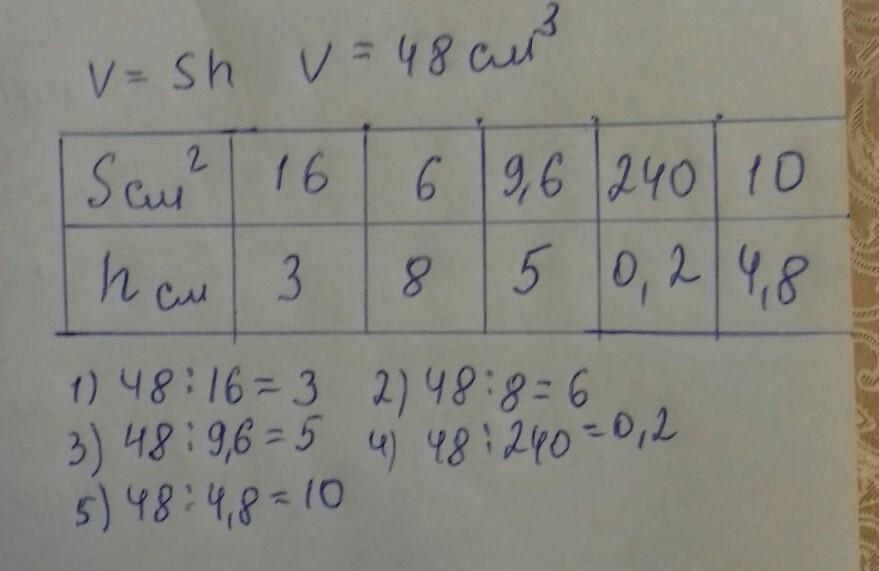 V = Sh V = 48 см³
S см² 16 6 9,6 240 10
h см 3 8 5 0,2 4,8
1) 48:16=3 2) 48:8=6
3) 48:9,6=5 4) 48:240=0,2
5) 48:4,8=10